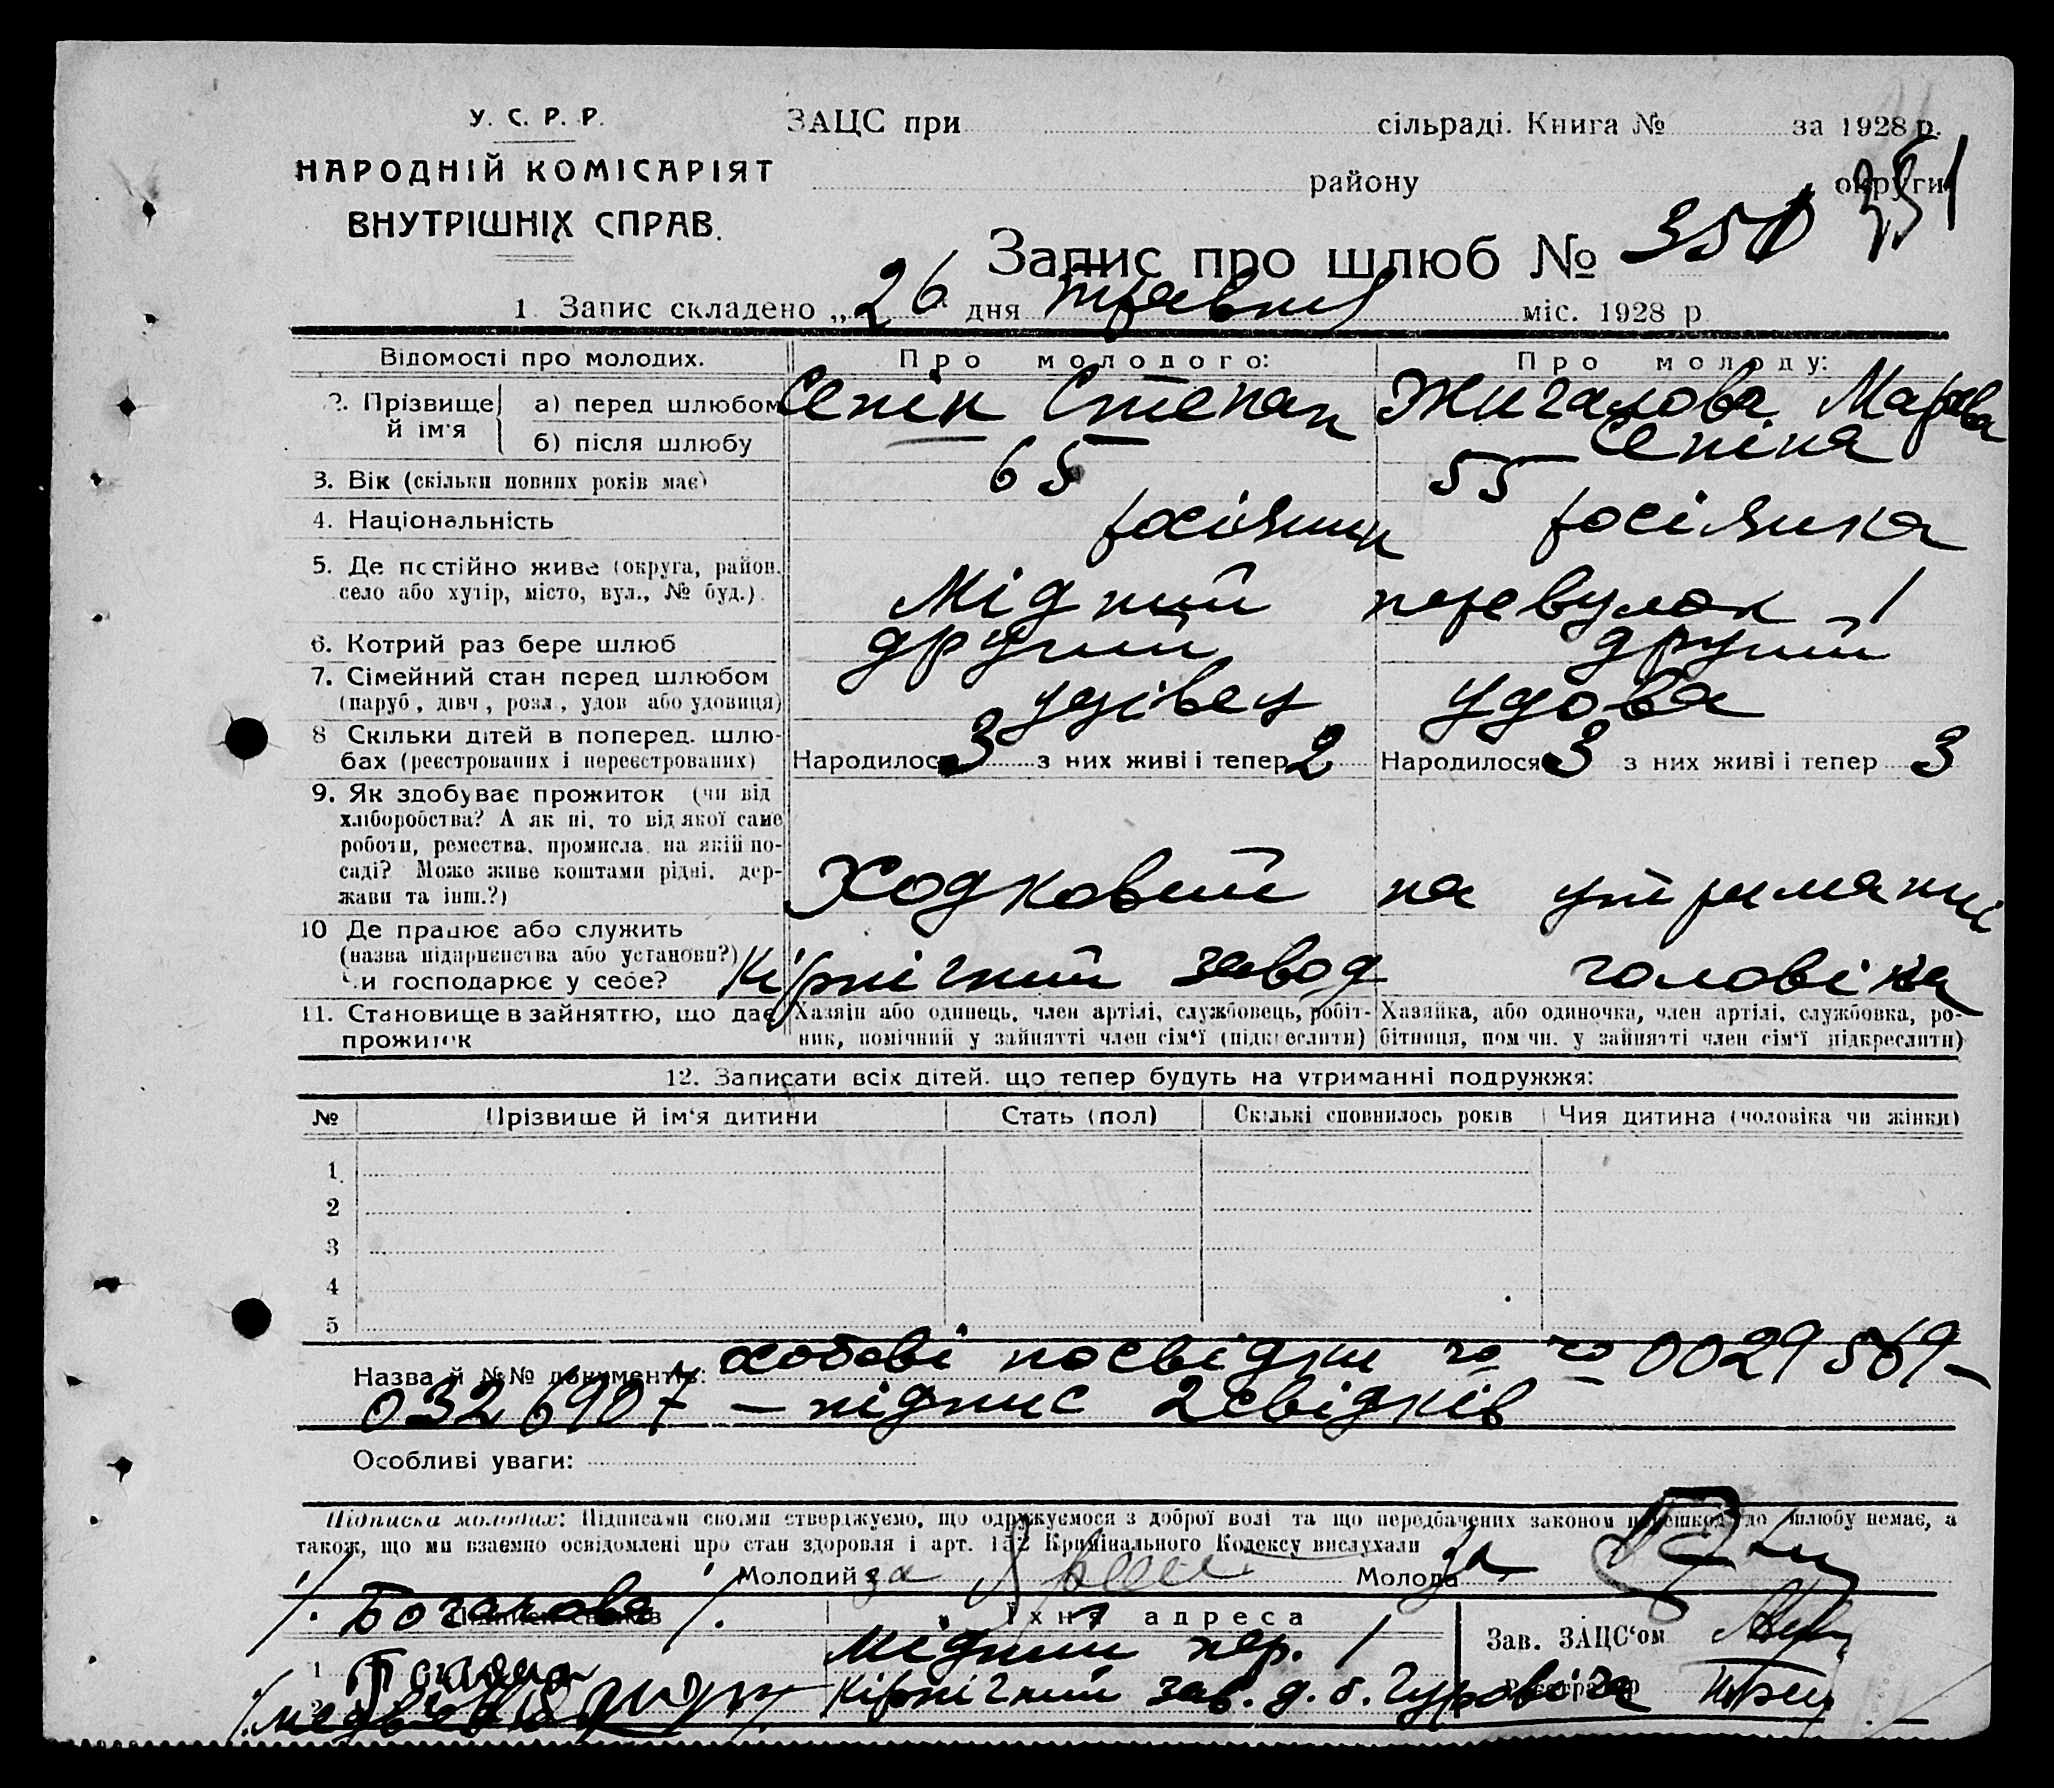 У. С. Р. Р.
НАРОДНІЙ КОМІСАРІЯТ
ВНУТРІШНІХ СПРАВ.
ЗАЦС при сільраді. Книга № за 1928 р.
району округи
351
Запис про шлюб № 350
1. Запис складено „26 дня травня міс. 1928 р
Відомості про молодих. Про молодого: Про молоду:
2. Прізвище й ім'я а) перед шлюбом Сепік Степан Жигалова Марфа
б) після шлюбу — — Сепіна
3. Вік (скільки повних років має) 65 55
4. Національність росіянин росіянка
5. Де постійно живе (округа, район,
село або хутір, місто, вул., № буд.). Мідний перевулок 1
6. Котрий раз бере шлюб другий другий
7. Сімейний стан перед шлюбом
(паруб., дівч., розл., удов або удовиця) удівец удова
8 Скільки дітей в поперед. шлю-
бах (реєстрованих і нереєстрованих) Народилося 3 з них живі і тепер 2 Народилося 3 з них живі і тепер 3
9. Як здобуває прожиток (чи від
хліборобства? А як ні, то від якої саме
роботи, ремества, промисла, на якій по-
саді? Може живе коштами рідні, дер-
жави та інш.?) Ходковий на утриманні
10 Де працює або служить
(назва підприенства або установи?)
Чи господарює у себе? Кірпічний завод головіка
11. Становище в зайняттю, що дає
прожиток
Хазяїн або одинець, член артілі, службовець, робіт-
ник, помічний у зайнятті член сім'ї (підкреслити)
Хазяйка, або одиночка, член артілі, службовка, ро-
бітниця, пом чн. у зайнятті член сім'ї підкреслити)
12. Записати всіх дітей. що тепер будуть на утриманні подружжя:
№ Прізвище й ім'я дитини Стать (пол) Скількі сповнилось років Чия дитина (чоловіка чи жінки)
1
2
3
4
5
Назва й №№ документів: особові посвідки 0029569 —
0326907 — підпис 2 свідків
Особливі уваги:
Підписка молодих: Підписами своїми стверджуємо, що одружуємося з доброї волі та що передбачених законом перешкод до шлюбу немає, а
також, що ми взаємно освідомлені про стан здоровля і арт. 152 Кримінального Кодексу вислухали
Молодий за Молода за
Підписи свідків Їхня адреса Зав. ЗАЦС'ом
Богачова
1 Мідний пер. 1
2 Кірпічний зав. д. б. Гуровіча Реєстратор